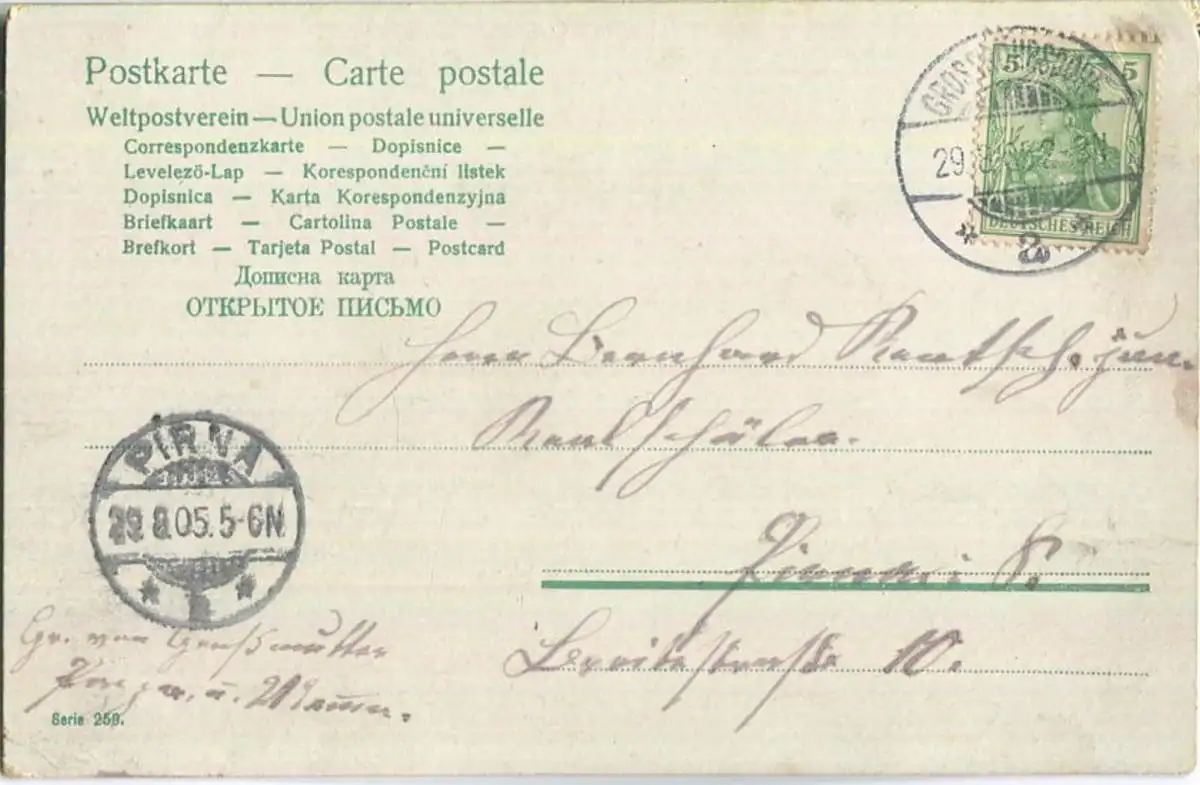 Postkarte — Carte postale
Weltpostverein — Union postale universelle
Correspondenzkarte — Dopisnice —
Levelező-Lap — Korespondenční lístek
Dopisnica — Karta Korespondenzyjna
Briefkaart — Cartolina Postale —
Brefkort — Tarjeta Postal — Postcard
Дописна карта
ОТКРЫТОЕ ПИСЬМО
5 5
29.
DEUTSCHES REICH
* 2 *
Herrn Bernhard Rentsch. jun.
Realschüler.
PIRNA
29 8.05.5-6N
* *
Pirna i S.
Breitestraße 10.
Gr. von Großmutter
u. Mama.
Serie 259.